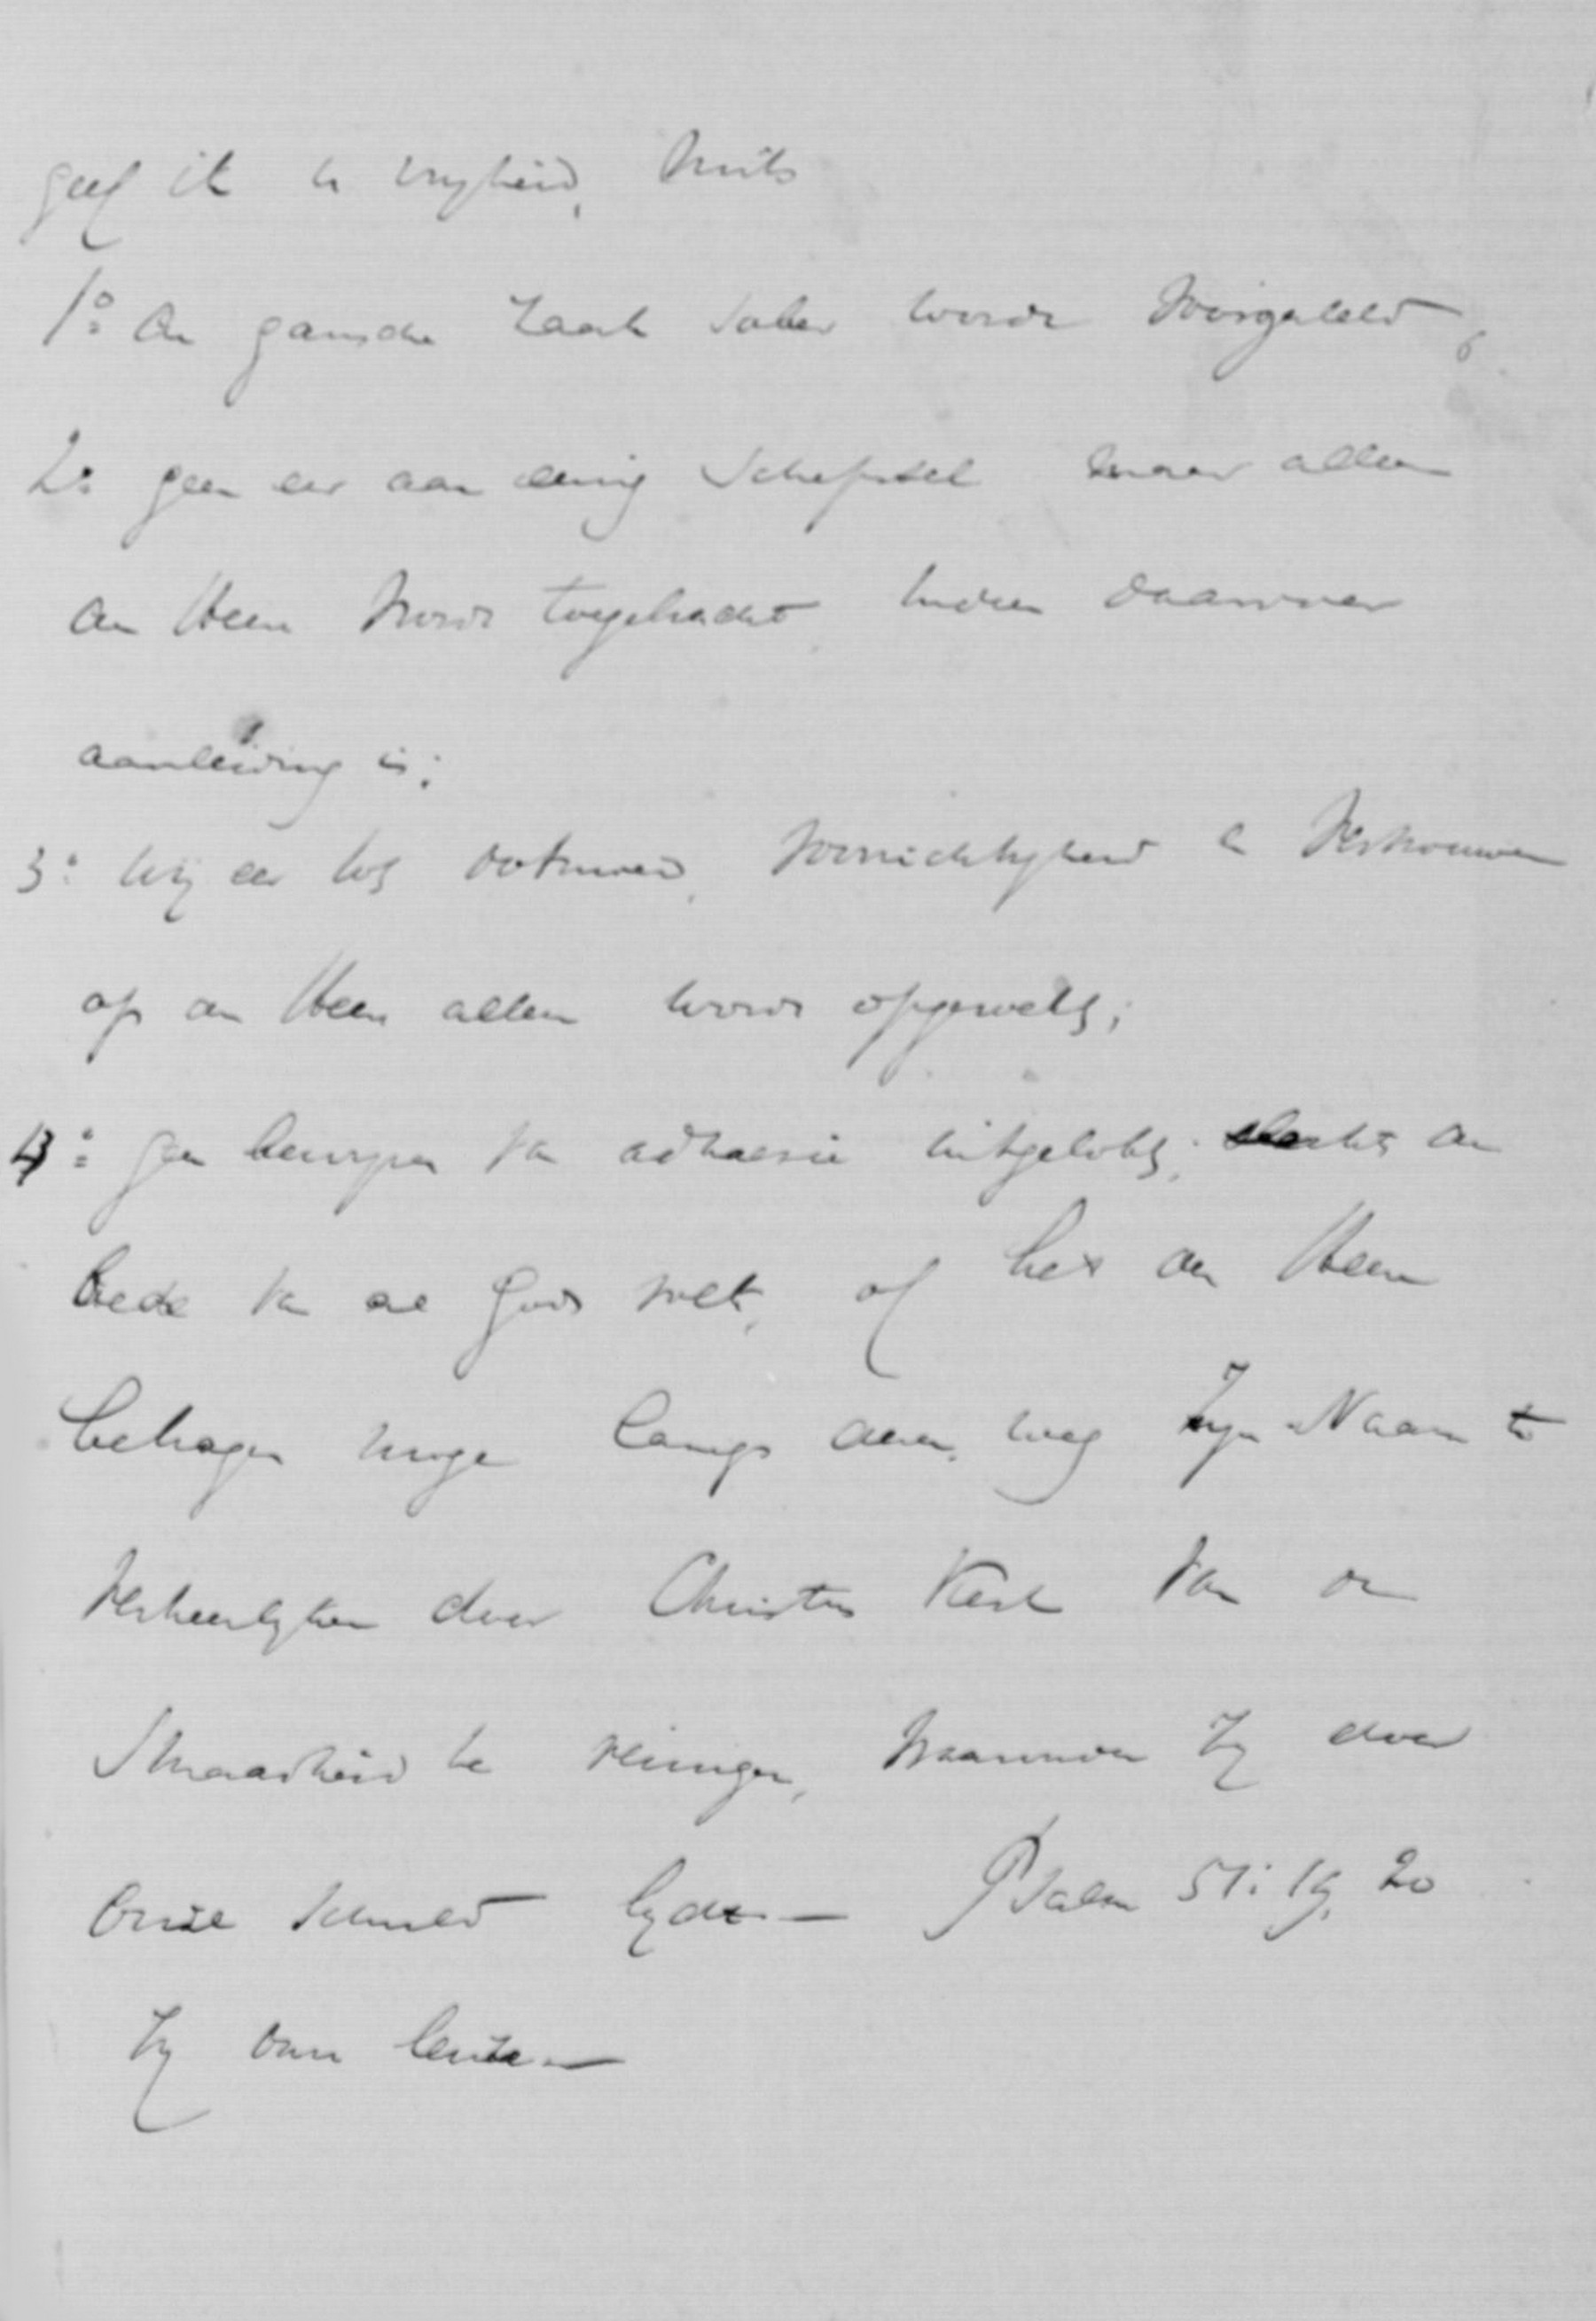 geef ik u vryheid, mits
1º: de gansche zaak sober worde voorgesteld,
2º: geen eer aan eenig schepsel maar alleen
den Heere word toegebracht, indien daarvoor
aanleiding is;
3º: bij een lof ootmoed, voorzichtigheid en vertrouwen
op den Heere alleen word opgewekt;
4º: geen bewyzen van adhaesie uitgelokt; slechts de
bede van al Gods volk, of het den Heere
behagen moge langs dezen weg Zyn Naam te
verheerlyken door Christus Kerk van de
smaadheid te reinigen, waaronder zy door
onze schuld lydt — Psalm 51: 19, 20
Zy onze leuze —